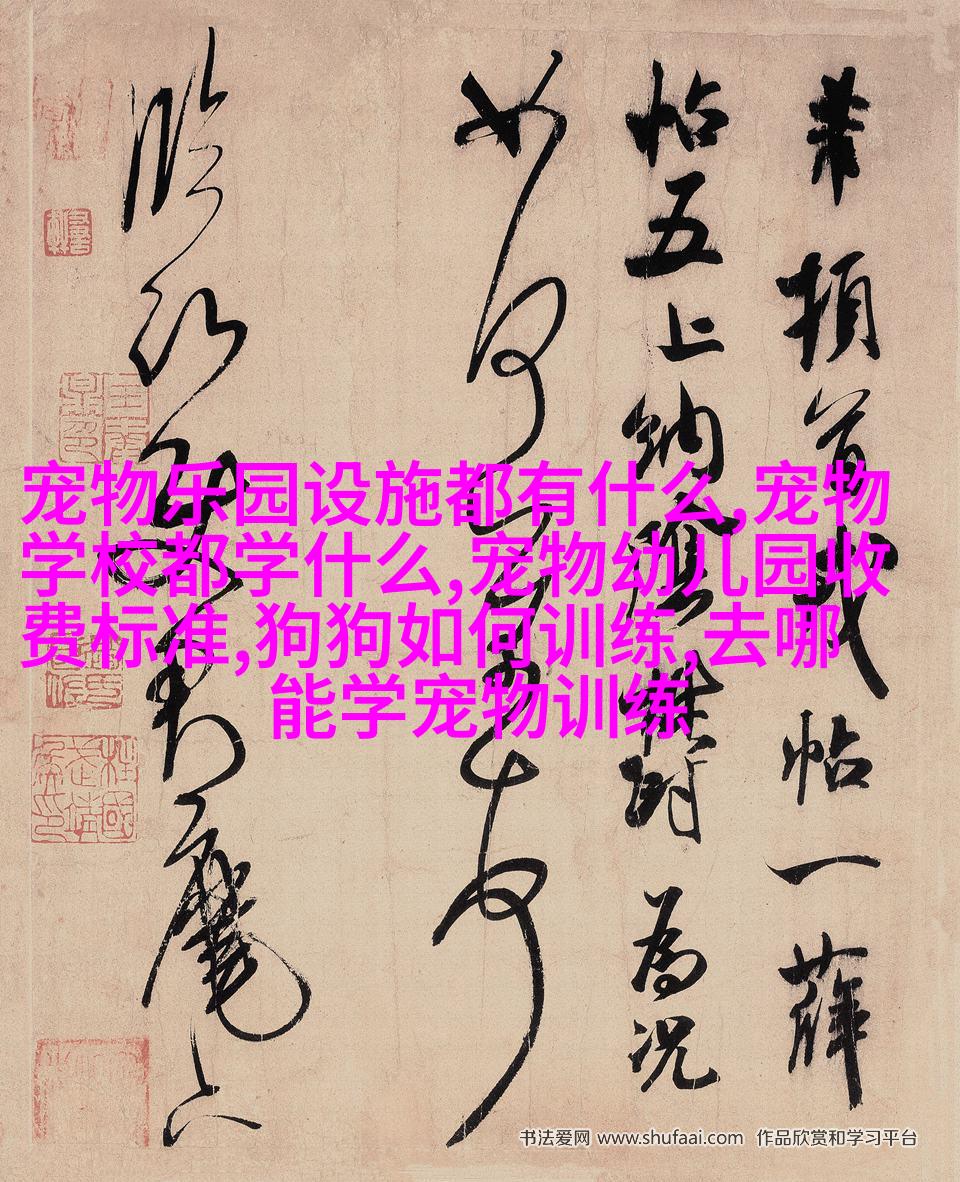 芾頓首戎帖一薛
帖五上納陰鬱為況
如何
臨沂使君麾下
宠物乐园设施都有什么,宠物
学校都学什么,宠物幼儿园收
费标准,狗狗如何训练,去哪
能学宠物训练
书法爱网 www.shufaai.com 作品欣赏和学习平台